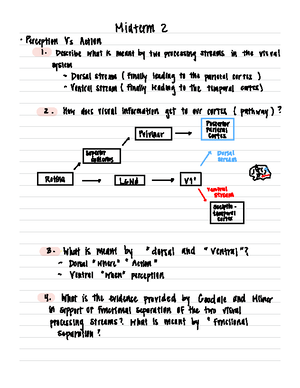 Midterm 2
• Perception Vs Action
1. Describe what is meant by two processing streams in the visual
system
~ Dorsal stream ( finally leading to the parietal cortex )
~ Ventral stream ( finally leading to the temporal cortex)
2. How does visual information get to our cortex ( pathway ) ?
Posterior
Parietal
Cortex
Pulvinar
Superior
colliculus
Dorsal
Stream
Retina
LGNd
V1
Ventral
stream
Occipito-
temporal
cortex
3. What is meant by "dorsal and "ventral"?
~ Dorsal "Where" "Action"
~ Ventral "What" perception
4. What is the evidence provided by Goodale and Milner
in support of functional separation of the two visual
processing streams? What is meant by "functional
separation?